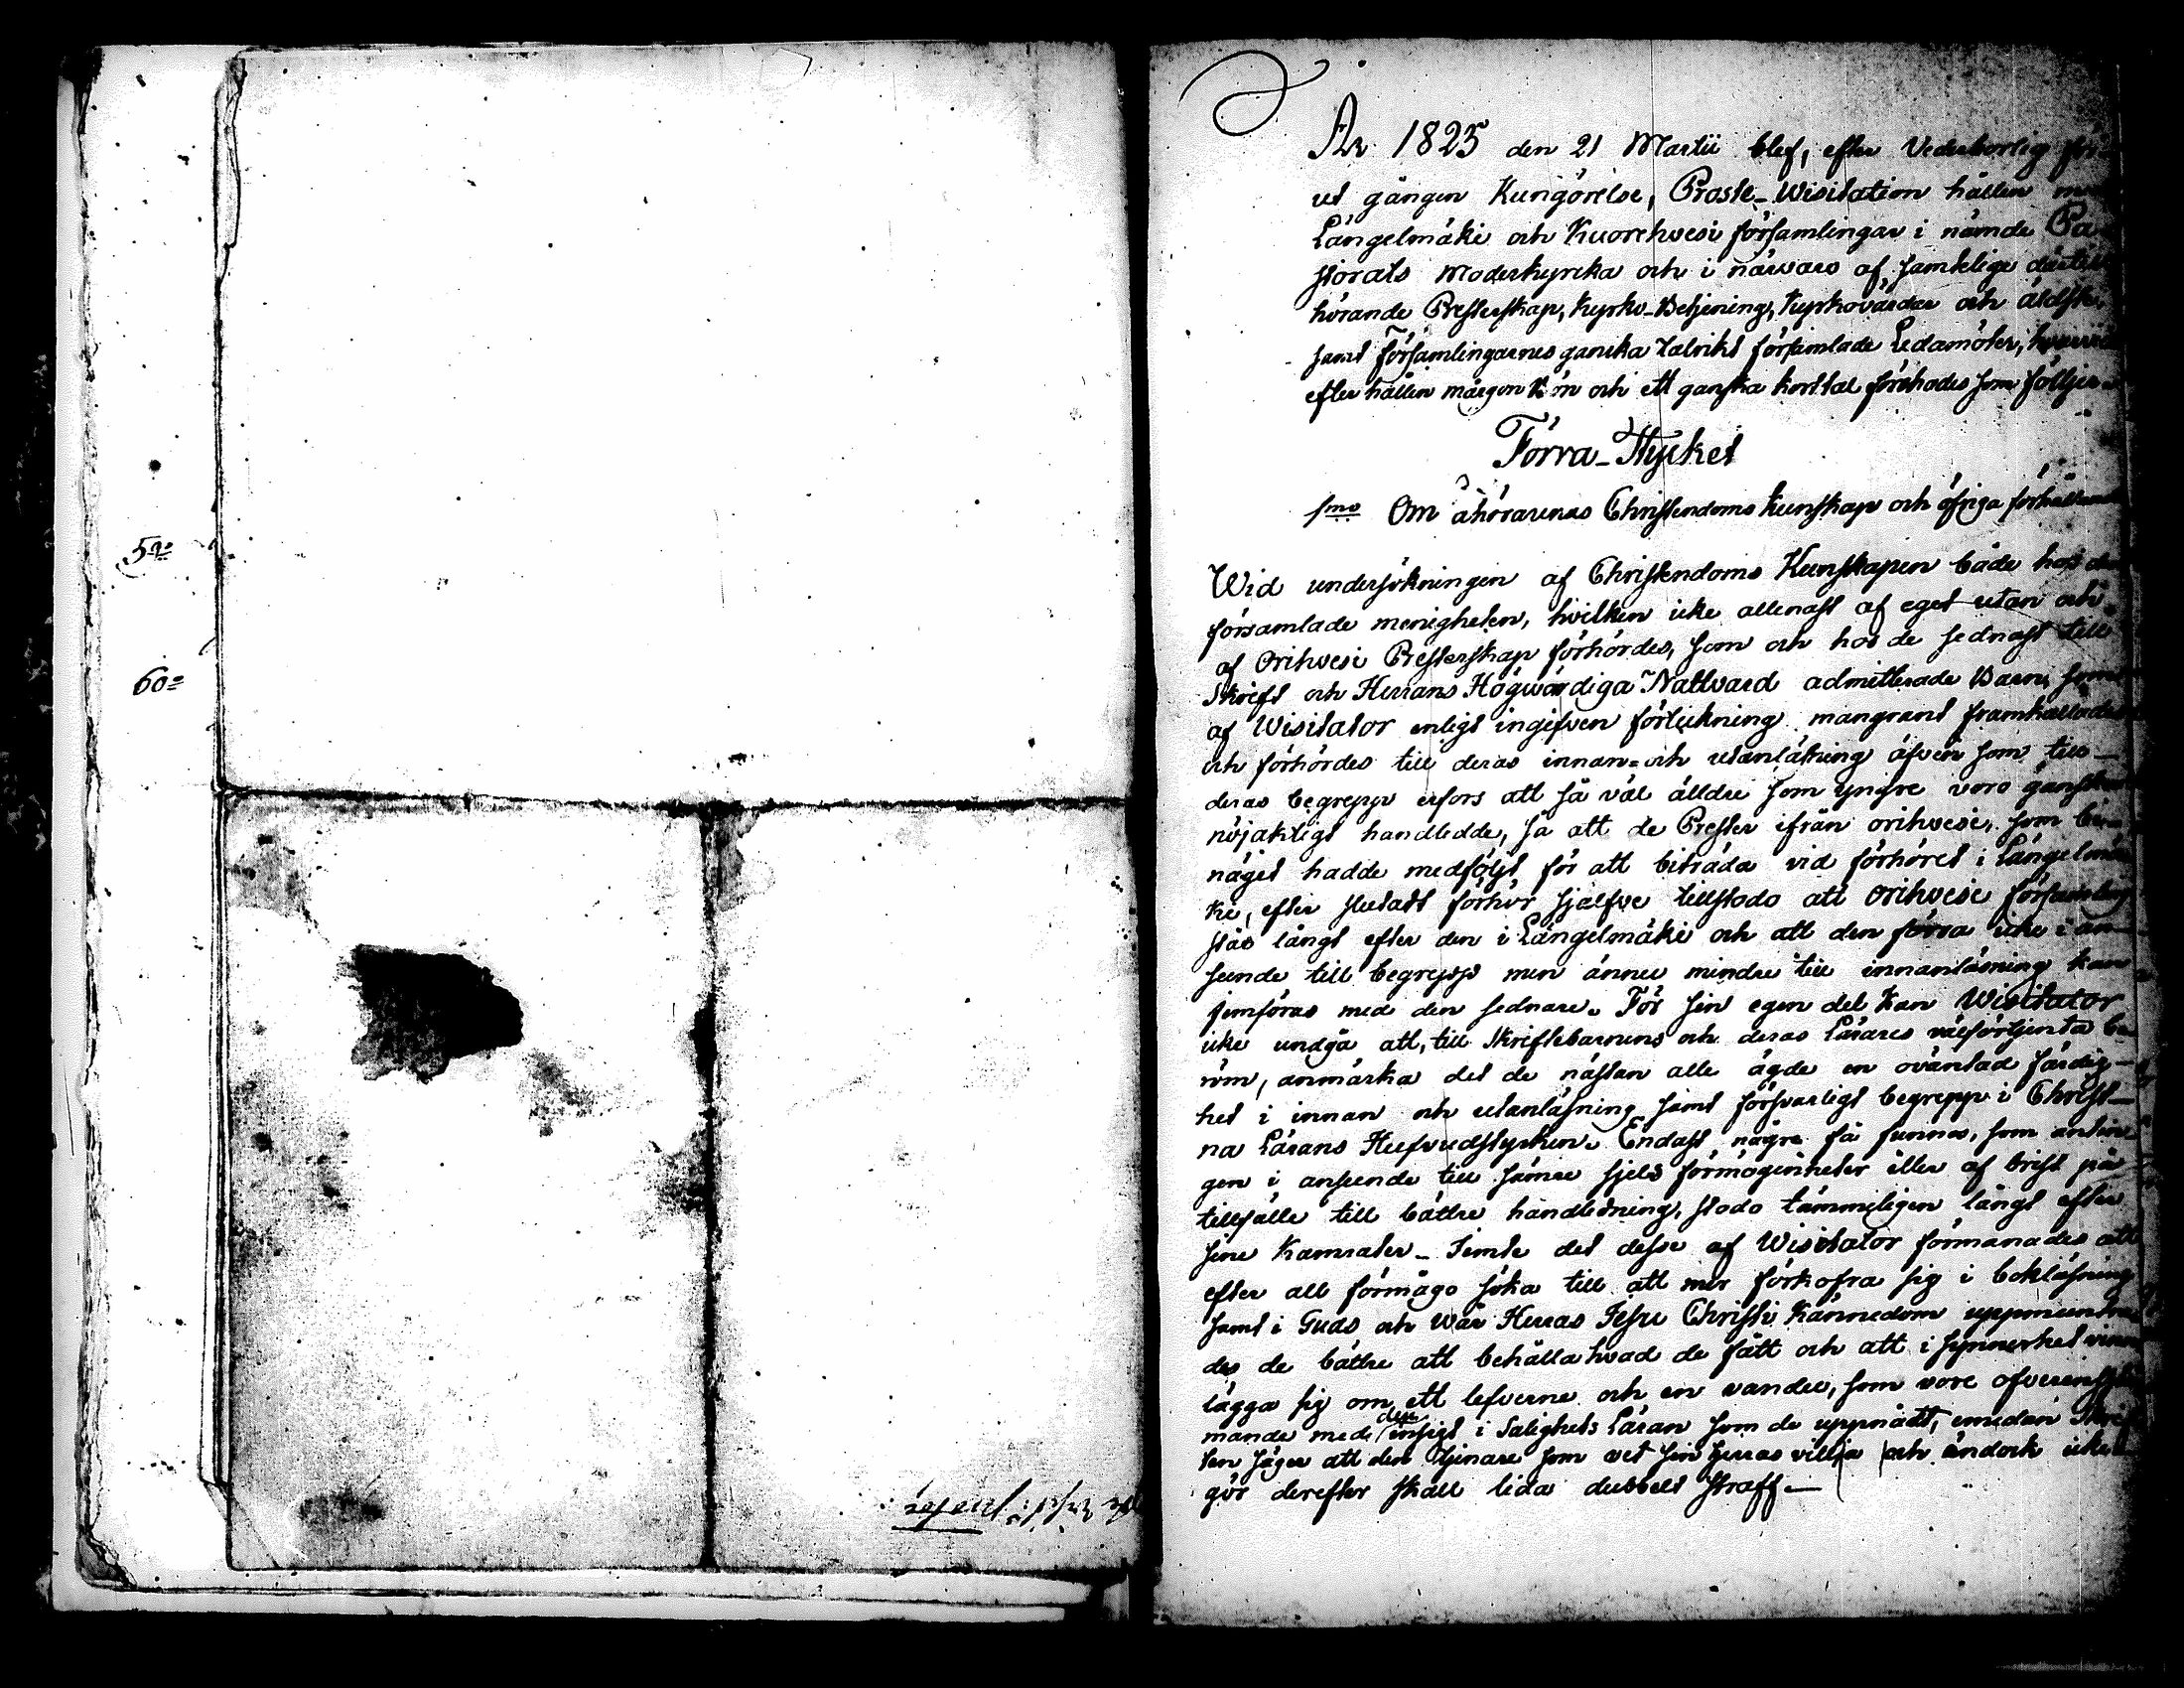 5=
60=
År 1825 den 21 Martii blef, efter Vederborlig för-
ut gången Kungörelse, Prosle-Wisitation hållen
Längelmäki och Kuorehvesi församlingar i nämde Pa-
storats Moderkyrcka och i närvaro af samtelige dertill
hörande Presterskap, Kyrko-Betjening, Kyrkovärdar och äldste,
samt Församlingarnes ganska talrikt församlade Ledamöter, hvarvid
efter hållen mårgon Bön och ett ganska kort tal förehades som följer
Förra-Stycket
1mo Om åhörarenas Christendoms kunskap och öfriga förhållande
Wid undersökningen af Christendoms Kunskapen både hos den
församlade menigheten, hvilken icke allenast af eget utan och
af Orihvesi Presterskap förhördes, som och hos de sednast till
Skrift och Herrans Högvördiga Nattvard admitterade Barn, som
af Wisitator enligt ingifven förteckning mangrant framkallades
och förhördes till deras innan- och utanläsning äfven som till
deras begrepp erfors att så väl älldre som yngre voro ganska
nöjaktigt handledde, så att de Prester ifrån Orihvesi, som
någet hadde medföljt för att biträda vid förhöret i Längelmä-
ki, efter slutadt förhör sjelfve tillstodo att Orihvesi församling
står långt efter den i Längelmäki och att den förra icke i an-
seende till begrepp men ännu mindre till innanläsning kan
jemföras med den sednare. För sin egen del kan Wisitator
icke undgå att, till Skriftebarnens och deras Lärares välförtjenta be-
röm, anmärka det de nästan alle ägde en oväntad färdig-
het i innan och utanläsning samt försvarligt begrepp i Christ-
na Lärans Hufvudstycken. Endast några få funnos, som antin-
gen i anseende till sämre sjels förmögenheter eller af brist på
tillfälle till bättre handledning, stodo tämmeligen långt efter
sine Kamrater - Jemte det desse af Wisitator förmanades att
efter all förmågo söka till att mer förkofra sig i bokläsning
samt i Guds och wår Herras Jesu Christi Kännedom uppmuntra-
des de bättre att behålla hvad de fått och att i synnerhet vinn-
lägga sig om ett lefverne och en vandel, som vore öfverensstäm-
mande med den insigt i Salighets Läran som de uppnådt, emedan Skrif-
ten säger att den tjenare som vet sin herras vilja och ändock icke
gör derefter skall lida dubbelt straff.-